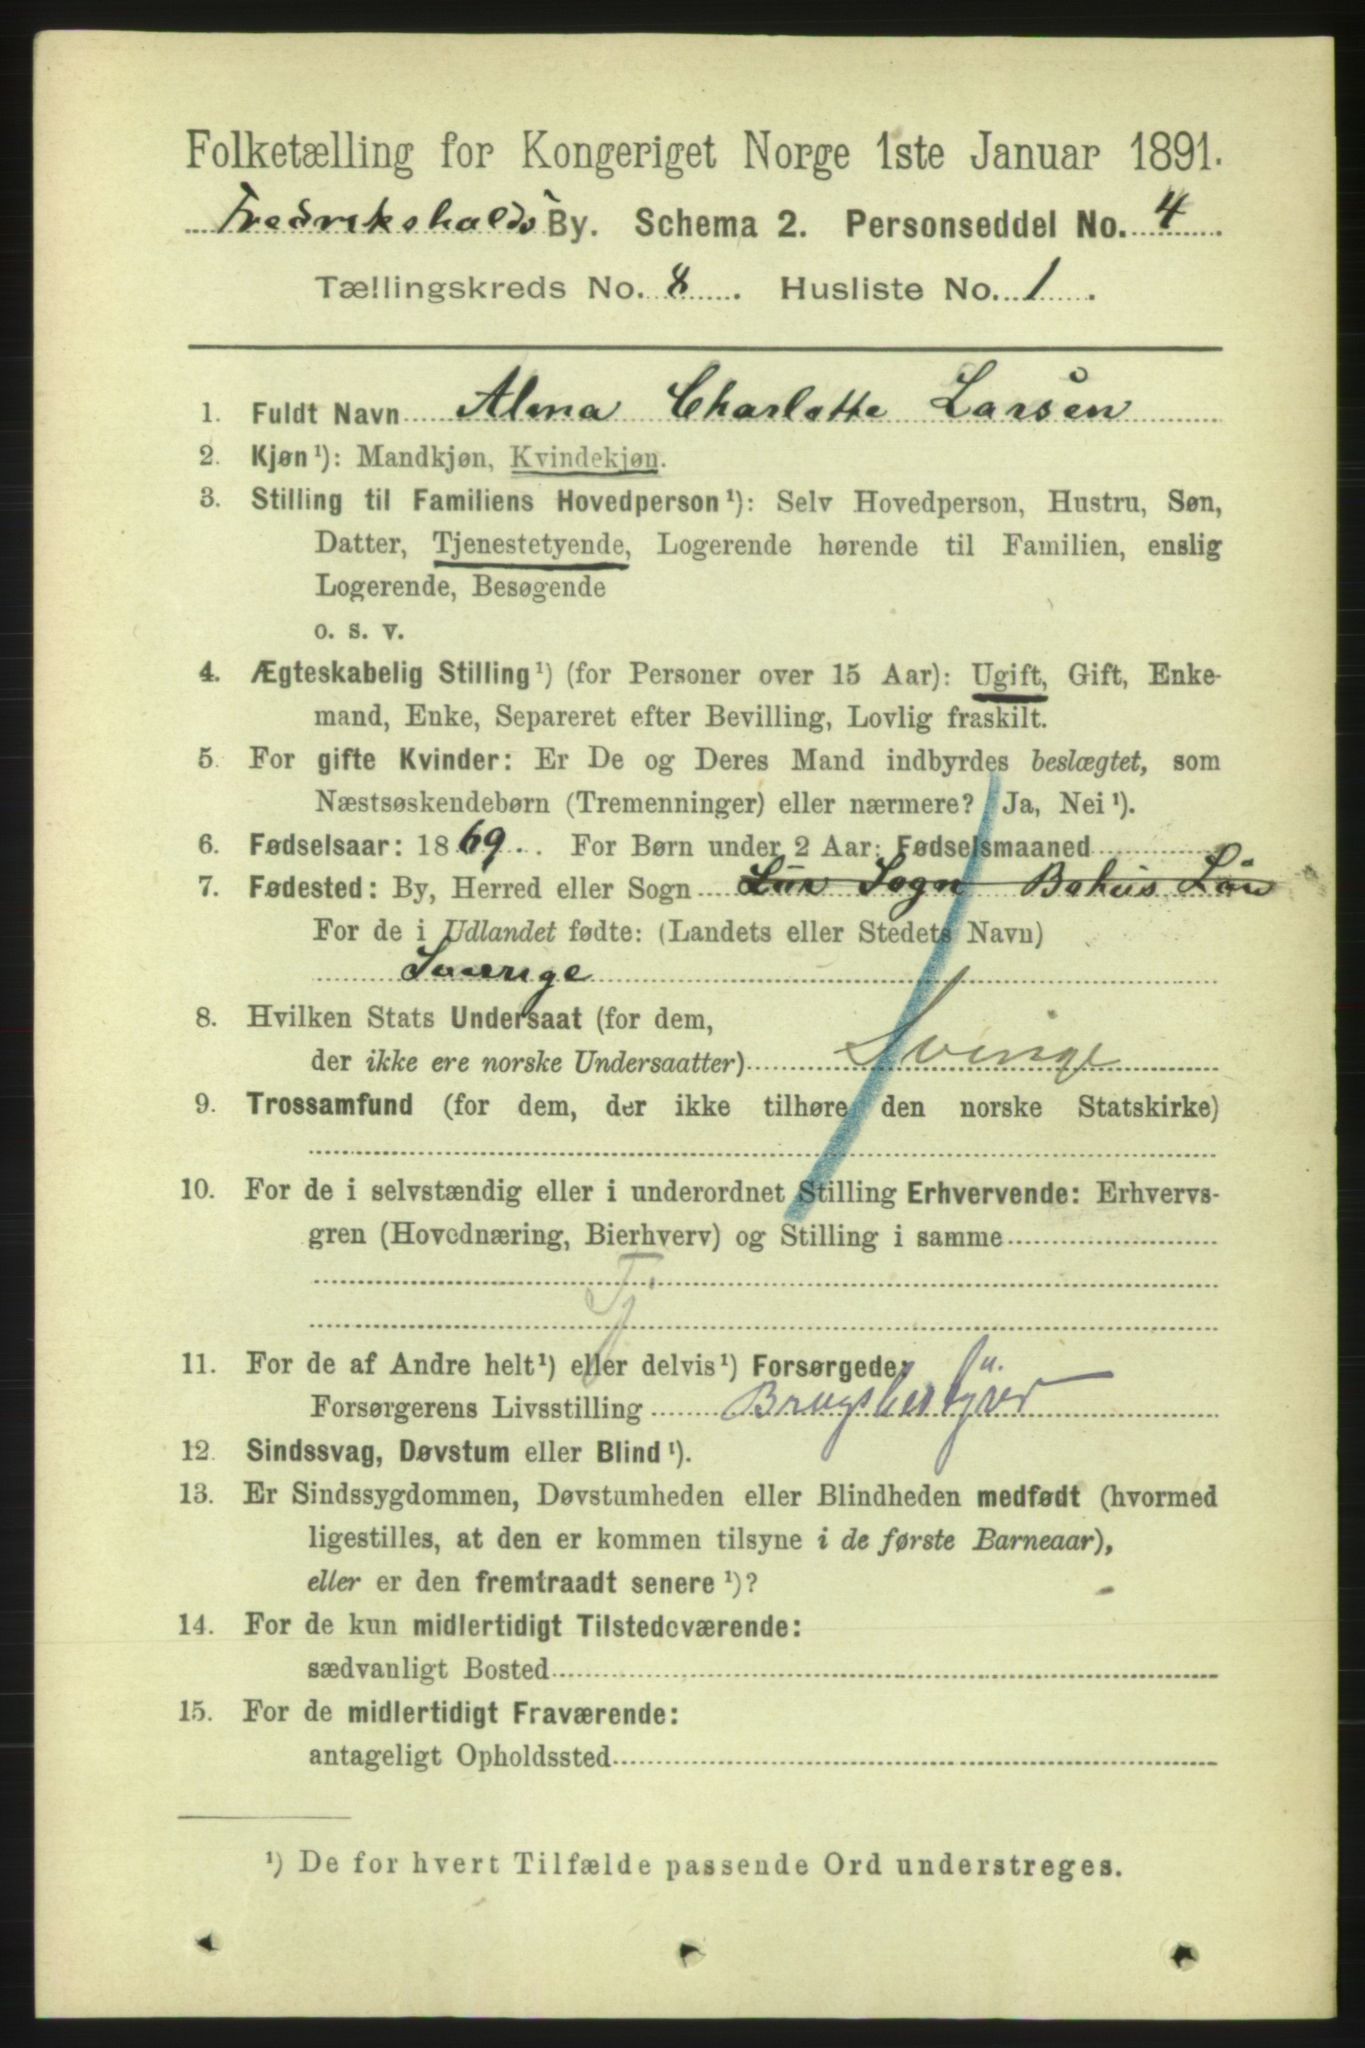 Folketælling for Kongeriget Norge 1ste Januar 1891.
Fredrikshalds By. Schema 2. Personseddel No. 4
Tællingskreds No. 8. Husliste No. 1.
1. Fuldt Navn Alma Charlotte Larsen
2. Kjøn¹): Mandkjøn, Kvindekjøn.
3. Stilling til Familiens Hovedperson¹): Selv Hovedperson, Hustru, Søn,
Datter, Tjenestetyende, Logerende hørende til Familien, enslig
Logerende, Besøgende
o. s. v.
4. Ægteskabelig Stilling¹) (for Personer over 15 Aar): Ugift, Gift, Enke-
mand, Enke, Separeret efter Bevilling, Lovlig fraskilt.
5. For gifte Kvinder: Er De og Deres Mand indbyrdes beslægtet, som
Næstsøskendebørn (Tremenninger) eller nærmere? Ja, Nei¹).
6. Fødselsaar: 1869. For Børn under 2 Aar: Fødselsmaaned
7. Fødested: By, Herred eller Sogn Lur Sogn Bahus Län
For de i Udlandet fødte: (Landets eller Stedets Navn)
Sverige
8. Hvilken Stats Undersaat (for dem,
der ikke ere norske Undersaatter) Sverige
9. Trossamfund (for dem, der ikke tilhøre den norske Statskirke)
10. For de i selvstændig eller i underordnet Stilling Erhvervende: Erhvervs-
gren (Hovednæring, Bierhverv) og Stilling i samme
Tj
11. For de af Andre helt¹) eller delvis¹) Forsørgede,
Forsørgerens Livsstilling Brugsbestyrer
12. Sindssvag, Døvstum eller Blind¹).
13. Er Sindssygdommen, Døvstumheden eller Blindheden medfødt (hvormed
ligestilles, at den er kommen tilsyne i de første Barneaar),
eller er den fremtraadt senere¹)?
14. For de kun midlertidigt Tilstedeværende:
sædvanligt Bosted
15. For de midlertidigt Fraværende:
antageligt Opholdssted
¹) De for hvert Tilfælde passende Ord understreges.